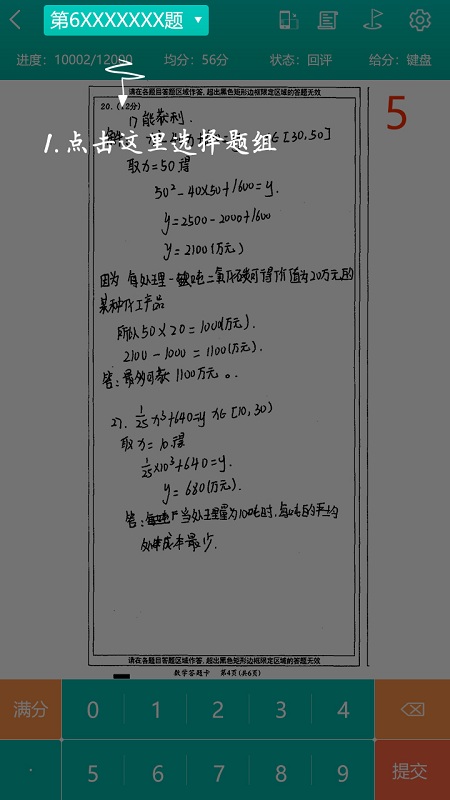 第6XXXXXXX题
进度：10002/12000 均分：56分 状态：回评 给分：键盘
请在各题目答题区域作答，超出黑色矩形边框限定区域的答题无效
5
20.（12分）
1.点击这里选择题组
∈[30,50]
取x=50得
50²-40×50+1600=y.
y=2500-2000+1600
y=2100(万元)
因为 每处理一吨二氧化碳可得价值为20万元的
某种化工产品
所以50×20=1000(万元).
2100-1000=1100(万元).
答：最多可获1100万元。
27. 1/25 x³+640=y x∈[10,30)
取x=10得
1/25×10³+640=y.
y=680(万元).
答：当处理量为100吨时,每吨的平均
处理成本最少.
请在各题目答题区域作答，超出黑色矩形边框限定区域的答题无效
数学答题卡 第4页(共6页)
满分 0 1 2 3 4
. 5 6 7 8 9 提交